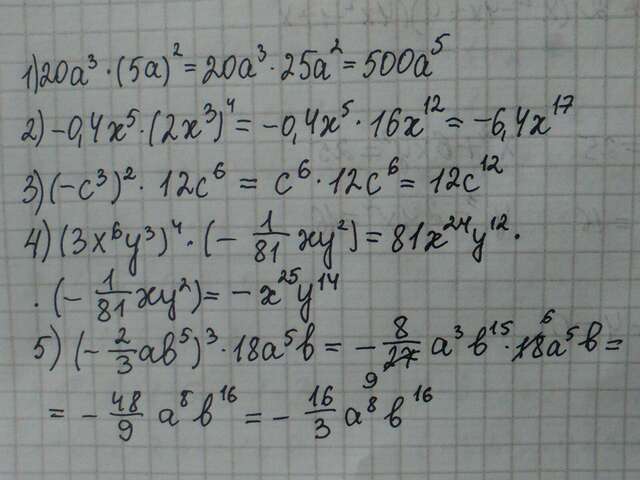 1) 20a³ · (5a)² = 20a³ · 25a² = 500a⁵
2) -0,4x⁵ · (2x³)⁴ = -0,4x⁵ · 16x¹² = -6,4x¹⁷
3) (-c³)² · 12c⁶ = c⁶ · 12c⁶ = 12c¹²
4) (3x⁶y³)⁴ · (- 1/81 xy²) = 81x²⁴y¹² ·
· (- 1/81 xy²) = -x²⁵y¹⁴
5) (- 2/3 ab⁵)³ · 18a⁵b = - 8/27 a³b¹⁵ · 18a⁵b =
9 6
= - 48/9 a⁸b¹⁶ = - 16/3 a⁸b¹⁶